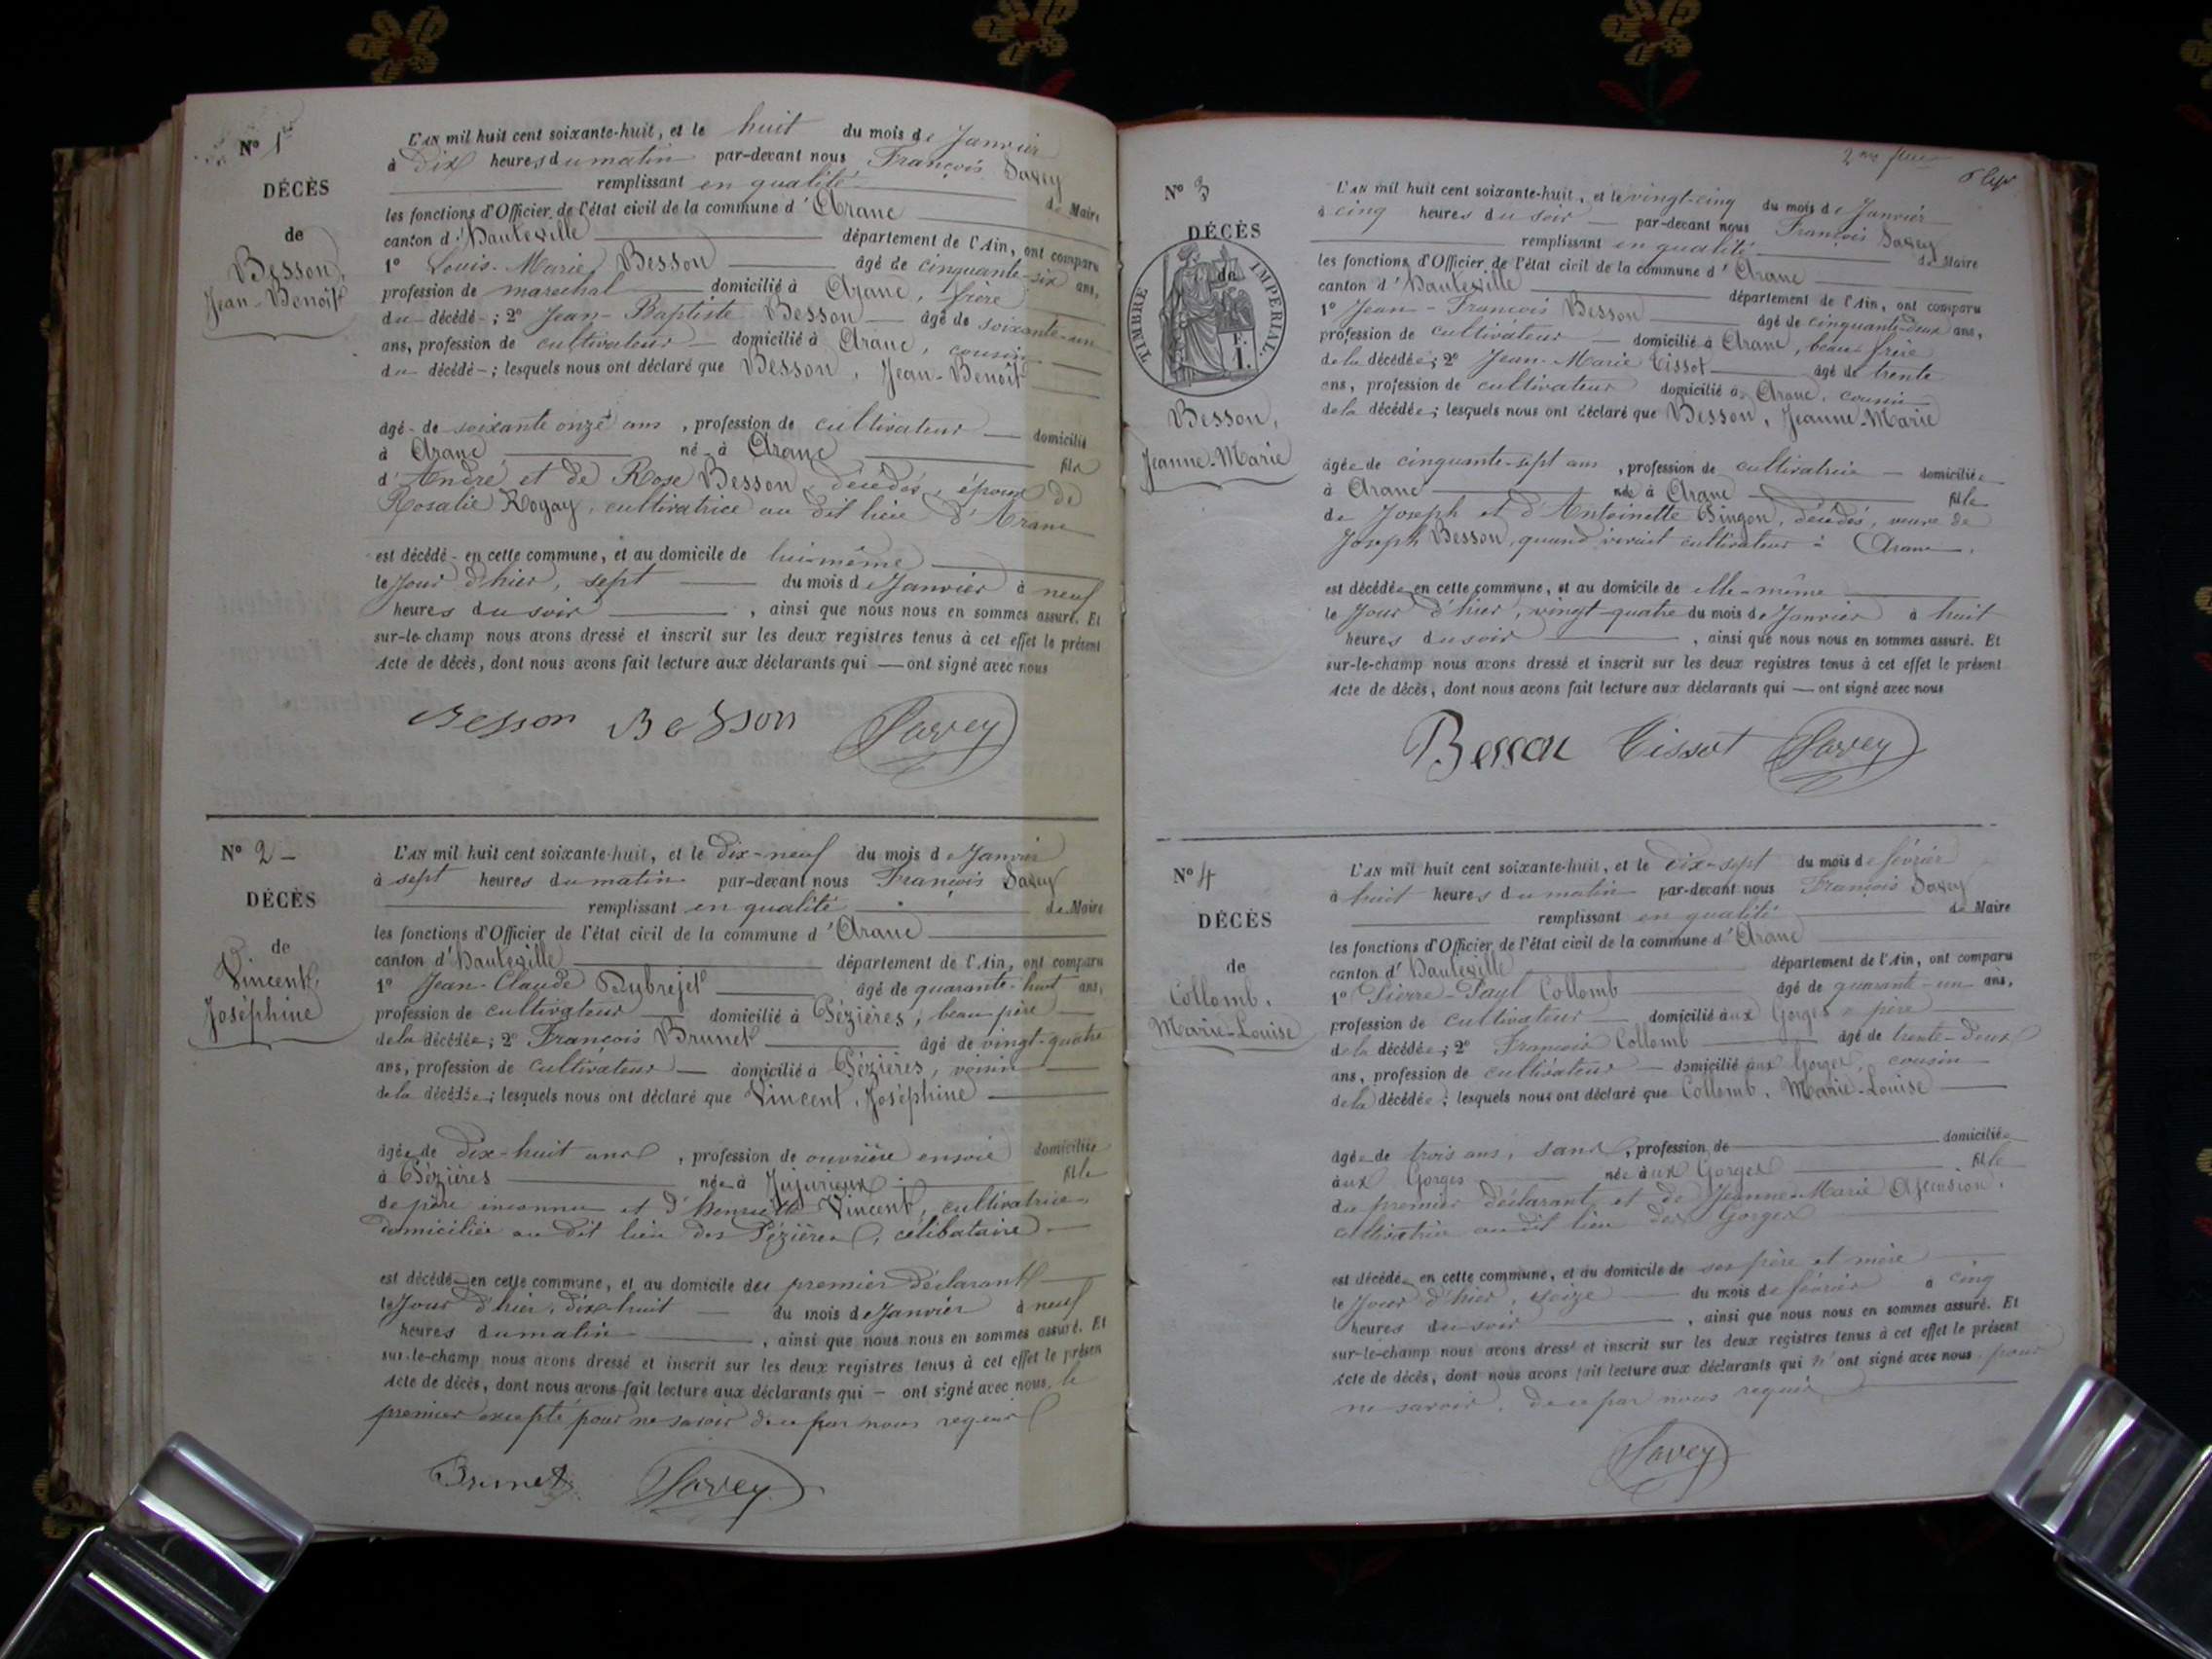 Nº 1er
DÉCÈS
de
Besson,
Jean-Benoît
L'AN mil huit cent soixante-huit, et le huit du mois de Janvier
à Dix heures du matin par-devant nous François Savey
remplissant en qualité de Maire
les fonctions d'Officier de l'état civil de la commune d'Aranc
canton d'Hauteville département de l'Ain, ont comparu
1º Louis-Marie Besson âgé de cinquante-six ans,
profession de marechal domicilié à Aranc, frère
du décédé ; 2º Jean-Baptiste Besson âgé de soixante-un
ans, profession de cultivateur domicilié à Aranc, cousin
du décédé ; lesquels nous ont déclaré que Besson, Jean-Benoît
âgé de soixante onze ans, profession de cultivateur domicilié
à Aranc né à Aranc fils
d'André et de Rose Besson, décédés, époux de
Rosalie Rogay, cultivatrice au dit lieu d'Aranc
est décédé en cette commune, et au domicile de lui-même
le Jour d'hier, sept du mois de Janvier à neuf
heures du soir, ainsi que nous nous en sommes assuré. Et
sur-le-champ nous avons dressé et inscrit sur les deux registres tenus à cet effet le présent
Acte de décès, dont nous avons fait lecture aux déclarants qui — ont signé avec nous
Besson Besson Savey
Nº 2
DÉCÈS
de
Vincent,
Joséphine
L'AN mil huit cent soixante-huit, et le dix-neuf du mois de Janvier
à sept heures du matin par-devant nous François Savey
remplissant en qualité de Maire
les fonctions d'Officier de l'état civil de la commune d'Aranc
canton d'Hauteville département de l'Ain, ont comparu
1º Jean-Claude Dubrejet âgé de quarante-huit ans,
profession de cultivateur domicilié à Pézières, beau-père
de la décédée ; 2º François Brunet âgé de vingt-quatre
ans, profession de cultivateur domicilié à Pézières, voisin
de la décédée ; lesquels nous ont déclaré que Vincent, Joséphine
âgée de dix-huit ans, profession de ouvrière en soie domiciliée
à Pézières née à Jujurieux fille
de père inconnu et d'henriette Vincent, cultivatrice
domiciliée au dit lieu des Pézières, célibataire
est décédée en cette commune, et au domicile du premier déclarant
le Jour d'hier, dix-huit du mois de Janvier à neuf
heures du matin, ainsi que nous nous en sommes assuré. Et
sur-le-champ nous avons dressé et inscrit sur les deux registres tenus à cet effet le présen
Acte de décès, dont nous avons fait lecture aux déclarants qui — ont signé avec nous, le
premier excepté pour ne savoir de ce par nous requis
Brunet Savey
2me
Nº 3
DÉCÈS
de
TIMBRE IMPÉRIAL
F.
1.
Besson,
Jeanne-Marie
L'AN mil huit cent soixante-huit, et le vingt-cinq du mois de Janvier
à cinq heures du soir par-devant nous François Savey
remplissant en qualité de Maire
les fonctions d'Officier de l'état civil de la commune d'Aranc
canton d'Hauteville département de l'Ain, ont comparu
1º Jean-François Besson âgé de cinquante-deux ans,
profession de cultivateur domicilié à Aranc, beau-frère
de la décédée ; 2º Jean-Marie Tissot âgé de trente
ans, profession de cultivateur domicilié à Aranc, cousin
de la décédée ; lesquels nous ont déclaré que Besson, Jeanne-Marie
âgée de cinquante-sept ans, profession de cultivatrice domiciliée
à Aranc née à Aranc fille
de Joseph et d'Antoinette Pingon, décédés, veuve de
Joseph Besson, quand vivait cultivateur à Aranc.
est décédée en cette commune, et au domicile de elle-même
le Jour d'hier, vingt-quatre du mois de Janvier à huit
heures du soir, ainsi que nous nous en sommes assuré. Et
sur-le-champ nous avons dressé et inscrit sur les deux registres tenus à cet effet le présent
Acte de décès, dont nous avons fait lecture aux déclarants qui — ont signé avec nous
Besson Tissot Savey
Nº 4
DÉCÈS
de
Collomb,
Marie-Louise
L'AN mil huit cent soixante-huit, et le dix-sept du mois de février
à huit heures du matin par-devant nous François Savey
remplissant en qualité de Maire
les fonctions d'Officier de l'état civil de la commune d'Aranc
canton d'Hauteville département de l'Ain, ont comparu
1º Pierre-Paul Collomb âgé de quarante-un ans,
profession de cultivateur domicilié aux Gorges, père
de la décédée ; 2º François Collomb âgé de trente-deux
ans, profession de cultivateur domicilié aux Gorges, cousin
de la décédée ; lesquels nous ont déclaré que Collomb, Marie-Louise
âgée de trois ans, sans, profession de domiciliée
aux Gorges née aux Gorges fille
du premier déclarant et de Jeanne-Marie Ascension,
cultivatrice au dit lieu des Gorges
est décédée en cette commune, et au domicile de ses père et mère
le Jour d'hier, seize du mois de février à cinq
heures du soir, ainsi que nous nous en sommes assuré. Et
sur-le-champ nous avons dressé et inscrit sur les deux registres tenus à cet effet le présent
Acte de décès, dont nous avons fait lecture aux déclarants qui n'ont signé avec nous, pour
ne savoir, de ce par nous requis
Savey